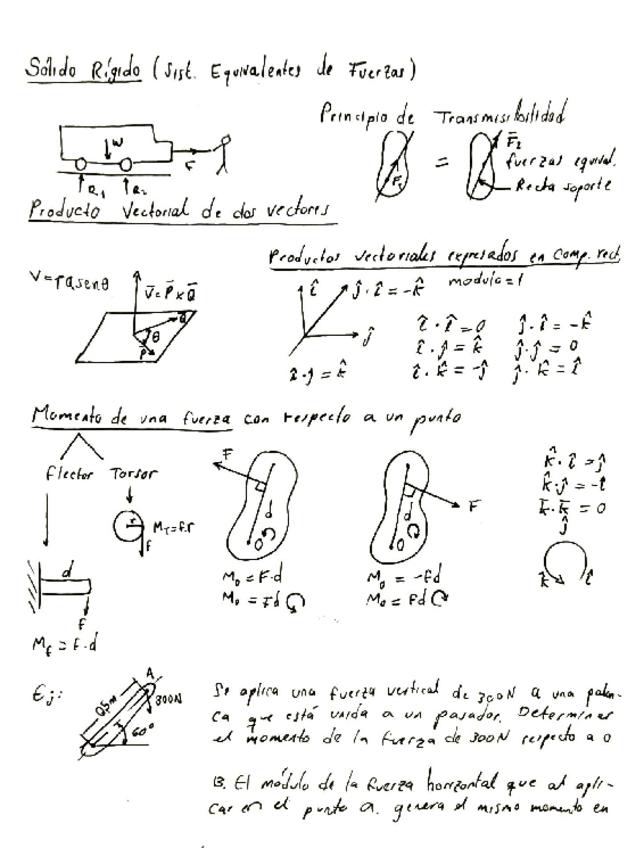 Sólido Rígido (Sist. Equivalentes de Fuerzas)
Principio de Transmisibilidad
W
F
R1
R2
F1
=
F2
fuerzas equival.
Recta soporte
Producto Vectorial de dos vectores
Productos vectoriales expresados en Comp. rect.
V=PQsenθ
V̄=P̄xQ̄
Q̄
θ
P̄
î
ĵ·î=-k̂
modulo=1
ĵ
î·ĵ=k̂
î·î=0
ĵ·î=-k̂
î·ĵ=k̂
ĵ·ĵ=0
î·k̂=-ĵ
ĵ·k̂=î
Momento de una fuerza con respecto a un punto
Flector Torsor
r
MT=F.r
F
F
d
O
F
d
O
k̂·î=ĵ
k̂·ĵ=-î
k̄·k̄=0
ĵ
k̂
î
d
F
Mf=F·d
Mo=F·d
Mo=Fd
Mo=-Fd
Mo=Fd
Ej:
0,5m
A
300N
60°
Se aplica una fuerza vertical de 300N a una palan-
ca que está unida a un pasador. Determinar
el momento de la fuerza de 300N respecto a o
B. El módulo de la fuerza horizontal que al apli-
car en el punto a. genera el mismo momento en